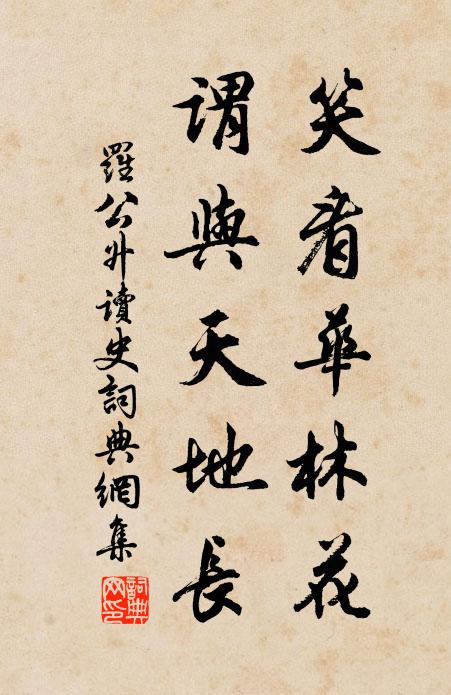 笑看華林花
謂與天地長
羅公升讀史詞典網集
詞典網印